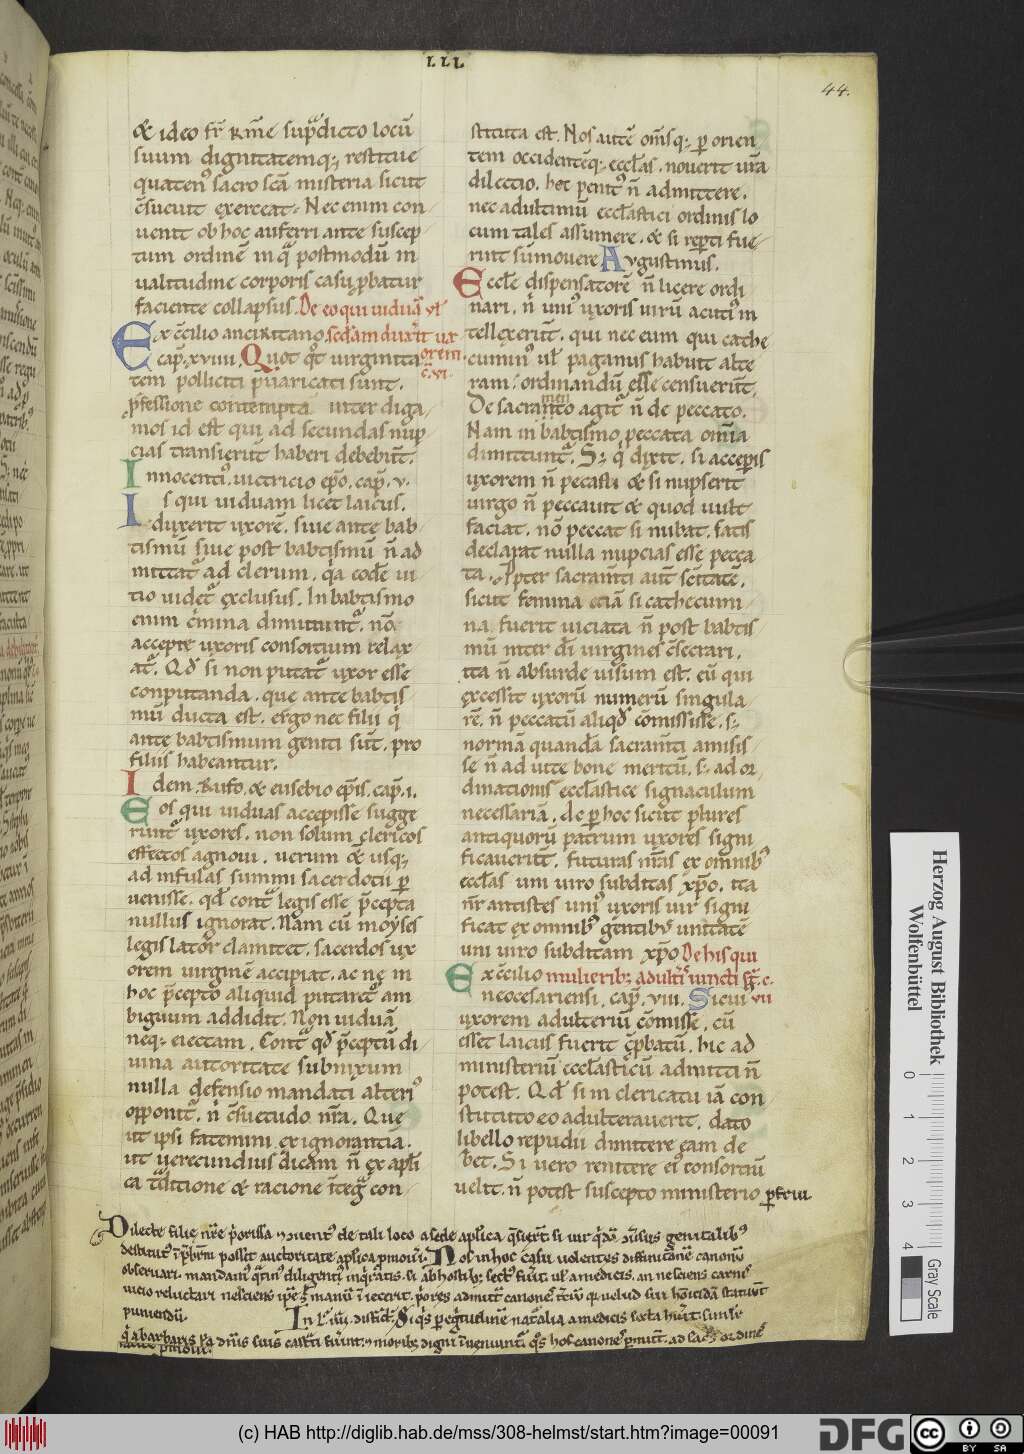 LLL
44.
& ideo fr̄ kme sup̄dicto locū
suum dignitatemq; restitue
quaten⁹ sacro scā misteria sicut
c̄sueuit exerceat. Nec enim con
uenit ob hoc auferri ante suscep
tum ordinē in q̄ postmodū in
ualitudine corporis casu p̄batur
faciente collapsus. De eo qui uiduā ul̄
Ex c̄cilio ancixitano sedam duxerit ux
cap̄. xviiii. Quot qt̄ uirginita orem.
tem polliciti p̄uaricati sunt. c. xi.
p̄fessione contempta inter diga
mos id est qui ad secundas nup
cias transierūt haberi debebūt.
Innocenti⁹ uictricio ep̄o. cap̄. v.
Is qui uiduam licet laicus.
duxerit uxorē. siue ante bab
tismū siue post babtismū n̄ ad
mittat᷑ ad clerum. q̄a eodē ui
tio uidet᷑ exclusus. In babtismo
enim c̄mina dimittunt᷑. nō
accepte uxoris consortium relax
at᷑. Qd̄ si non putat᷑ uxor esse
conputanda. que ante babtis
mū ducta est. ergo nec filii q̄
ante babtismum geniti sūt. pro
filiis habeantur.
Idem Rufo. & eusebio ep̄is. cap̄. i.
Eos qui uiduas accepisse sugge
runt᷑ uxores. non solum clericos
effectos agnoui. uerum & usq;
ad infulas summi sacerdotii p̄
uenisse. qd̄ cont᷑ legis esse p̄cepta
nullus ignorat. Nam cū moyses
legislator clamitet. sacerdos ux
orem uirginē accipiat. ac ne in
hoc p̄cepto aliquid putaret᷑ am
biguum addidit. Non uiduā
neq; eiectam. Cont᷑ qd̄ p̄ceptū di
uina auctoritate subnixum
nulla defensio mandati alteri⁹
opponit᷑. n̄ c̄suetudo nr̄a. Que
ut ipsi fatemini ex ignorantia.
ut uerecundius dicam n̄ ex apl̄i
ca t᷑ditione & racione integ᷑ con
stituta est. Nos autē om̄sq; p̄ orien
tem occidentēq; eccl̄as. nouerit ur̄a
dilectio. hoc penit⁹ n̄ admittere.
nec ad ultimū eccl̄astici ordinis lo
cum tales assumere. & si rep̄ti fue
rint sūmouere Augustinus.
Eccl̄e dispensatorē n̄ licere ordi
nari. n̄ uni⁹ uxoris uirū acuti⁹ in
tellexerūt. qui nec eum qui cathe
cumin⁹ ul̄ paganus habuit alte
ram. ordinandū esse censuerūt.
De sacramento agit᷑ n̄ de peccato.
Nam in babtismo peccata omnia
dimittunt᷑. S; q̄ dixit. si acceperis
uxorem n̄ peccasti & si nupserit
uirgo n̄ peccauit & quod uult
faciat. nō peccat si nubat. satis
declarat nulla nupcias esse pecca
ta. Ppter sacram̄ti aut̄ sc̄itatē.
sicut femina etiā si cathecumi
na. fuerit uiciata n̄ post babtis
mū inter dī uirgines c̄secrari.
ita n̄ absurde uisum est. eū qui
excessit uxorū numerū singula
rē. n̄ peccatū aliqd̄ comississe. s;
normā quandā sacram̄ti amisis
se n̄ ad uite bone meritū. s; ad or
dinationis eccl̄astice signaculum
necessariā. de p̄ hoc sicut plures
antiquorū patrum uxores signi
ficauerūt. futuras nr̄as ex omnib⁹
eccl̄as uni uiro subditas xp̄o. ita
nr̄ antistes uni⁹ uxoris uir signi
ficat ex omnib⁹ gentib⁹ unitatē
uni uiro subditam xp̄o De his qui
Ex c̄cilio mulierib; adult̄s iuncti st̄. c.
neocesariensi. cap̄. viii. Sicui vii
uxorem adulteriū c̄misse. cū
esset laicus fuerit c̄p̄batū. hic ad
ministeriū eccl̄asticū admitti n̄
potest. Qd̄ si in clericatu iā con
stituto eo adulterauerit. dato
libello repudii dimittere eam de
bet. Si uero renitere ei⁹ consortiū
uelit. n̄ potest suscepto ministerio p̄frui
Dilecte filie nr̄e
a sede aplica
auctoritate aplica pmoueri. Nos in hoc casu uolentes
obseruari. mandam⁹
puniendū.
Herzog August Bibliothek
Wolfenbüttel
0 1 2 3 4
Gray Scale
(c) HAB http://diglib.hab.de/mss/308-helmst/start.htm?image=00091
DFG
cc
BY SA